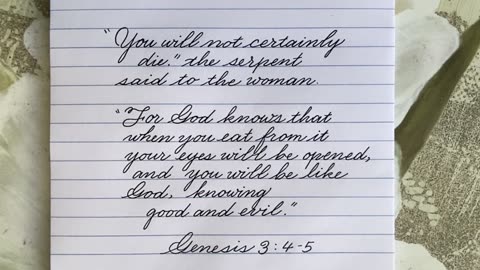 "You will not certainly
die," the serpent
said to the woman.
"For God knows that
when you eat from it
your eyes will be opened,
and you will be like
God, knowing
good and evil."
Genesis 3:4-5